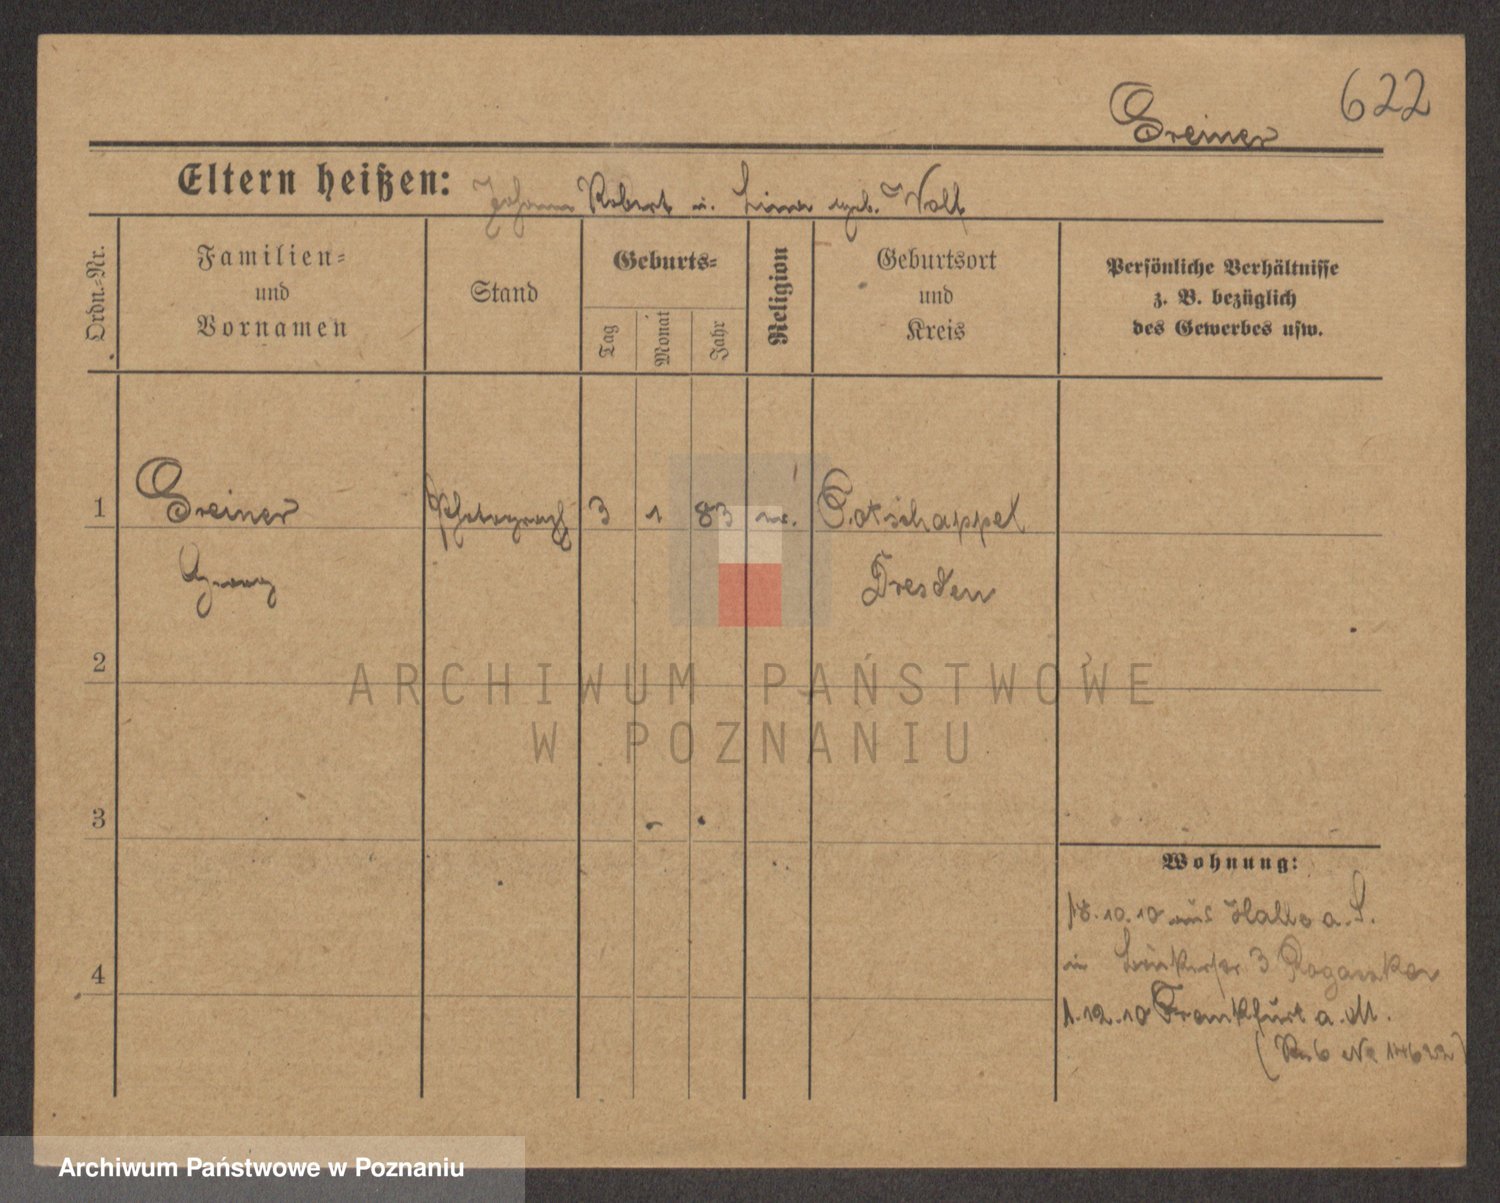 622
Greiner
Eltern heißen: Johann Robert u. Lina geb. Wolf
Ordn.-Nr.
Familien-
und
Vornamen
Stand
Geburts-
Tag
Monat
Jahr
Religion
Geburtsort
und
Kreis
Persönliche Verhältnisse
z. B. bezüglich
des Gewerbes usw.
1 Greiner Photograph 3 1 83 Potschappel
Georg Dresden
2
3
4
Wohnung:
18.10.10 aus Halle a. S.
in 3
1.12.10 Frankfurt a. M.
ARCHIWUM PAŃSTWOWE
W POZNANIU
Archiwum Państwowe w Poznaniu